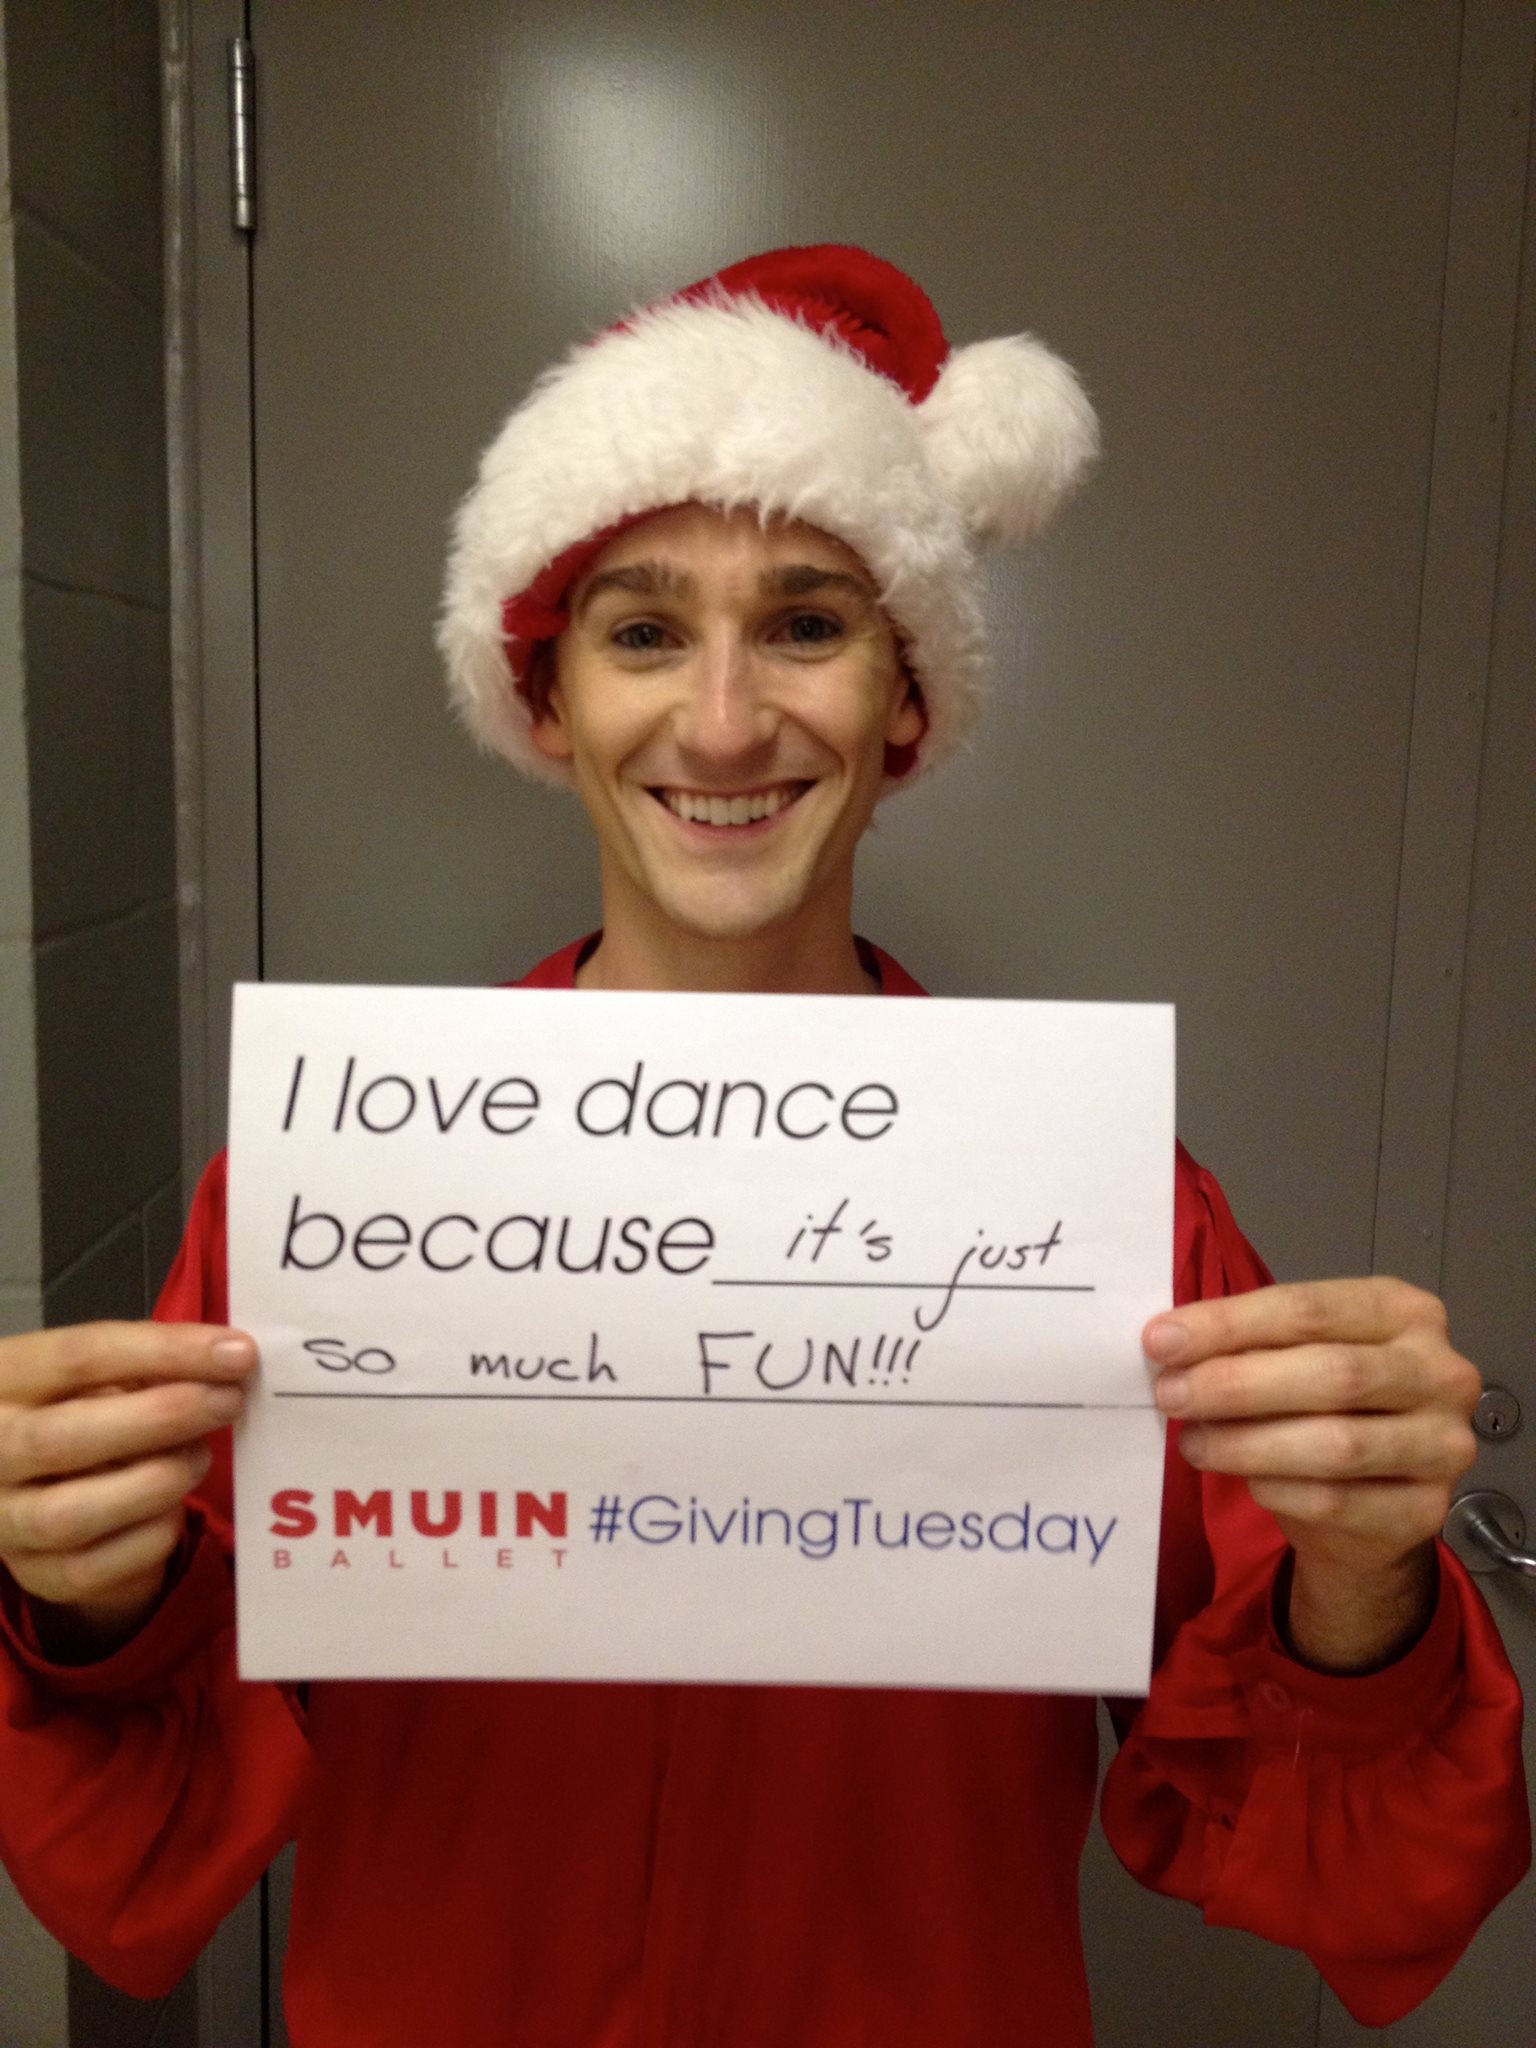 I love dance
because it's just
so much FUN!!!
SMUIN #GivingTuesday
BALLET